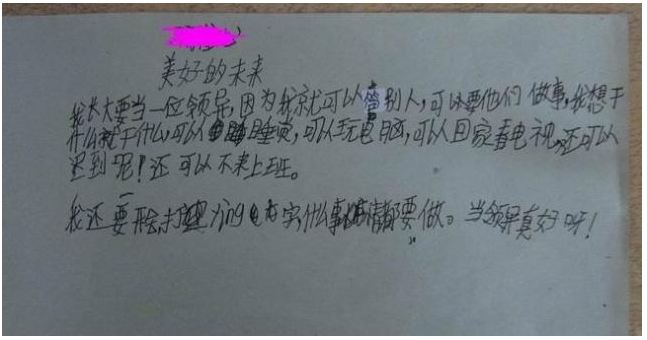 美好的未来
我长大要当一位领导,因为我就可以管别人,可以要他们做事,我想干
什么就干什么,可以睡觉,可以玩电脑,可以回家看电视,还可以
迟到呢!还可以不来上班。
我还要开会,什么事情都要做。当领导真好呀!